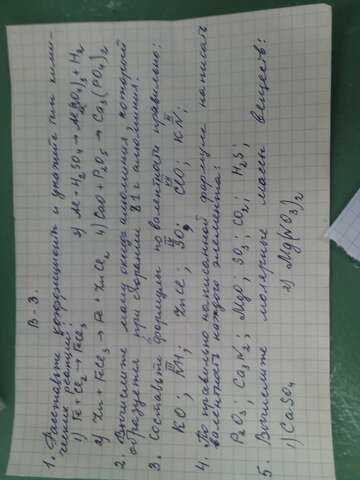 В-3.
1. Расставьте коэффициенты и укажите тип хими-
ческих реакций:
1) Fe + Cl₂ → FeCl₃ 3) Al + H₂SO₄ → Al₂(SO₄)₃ + H₂
2) Zn + FeCl₃ → Fe + ZnCl₂ 4) CaO + P₂O₅ → Ca₃(PO₄)₂
2. Вычислите массу оксида алюминия который
образуется при сгорании 8,1 г алюминия.
3. Составьте формулы по валентности правильно:
KO; NH; ZnCl; SO; ClO; KN;
4. По правильно написанной формуле написать
валентность каждого элемента:
P₂O₃; Ca₃N₂; MgO; SO₃; CO₂; H₂S;
5. Вычислите молярные массы веществ:
1) CaSO₄ 2) Mg(NO₃)₂